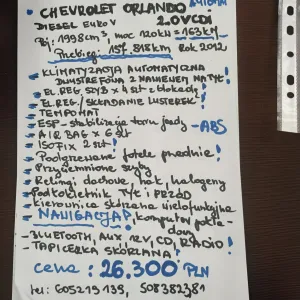 CHEVROLET ORLANDO
DIESEL EURO V 2.0VCDI
Poj: 1998cm³, moc 120kW = 163KM
Przebieg: 157.818km Rok 2012
- KLIMATYZACJA AUTOMATYCZNA
DWUSTREFOWA Z NAWIEWEM NA TYŁ!
- EL. REG. SZYB X 4szt z blokadą!
- EL. REG/SKŁADANIE LUSTEREK!
- TEMPOMAT
- ESP - stabilizacja toru jazdy - ABS
- AIR BAG x 6szt
- ISOFIX 2szt!
- Podgrzewane fotele przednie!
- Przyciemnione szyby
- Relingi dachowe, hak, halogeny
- Podłokietnik TYŁ i PRZÓD
- Kierownica skórzana wielofunkcyjna
- NAWIGACJA!, komputer pokła-
dowy
- BLUETOOTH, AUX, 12V, CD, RADIO!
- TAPICERKA SKÓRZANA!
cena: 26.300 PLN
tel: 605219139, 508382781